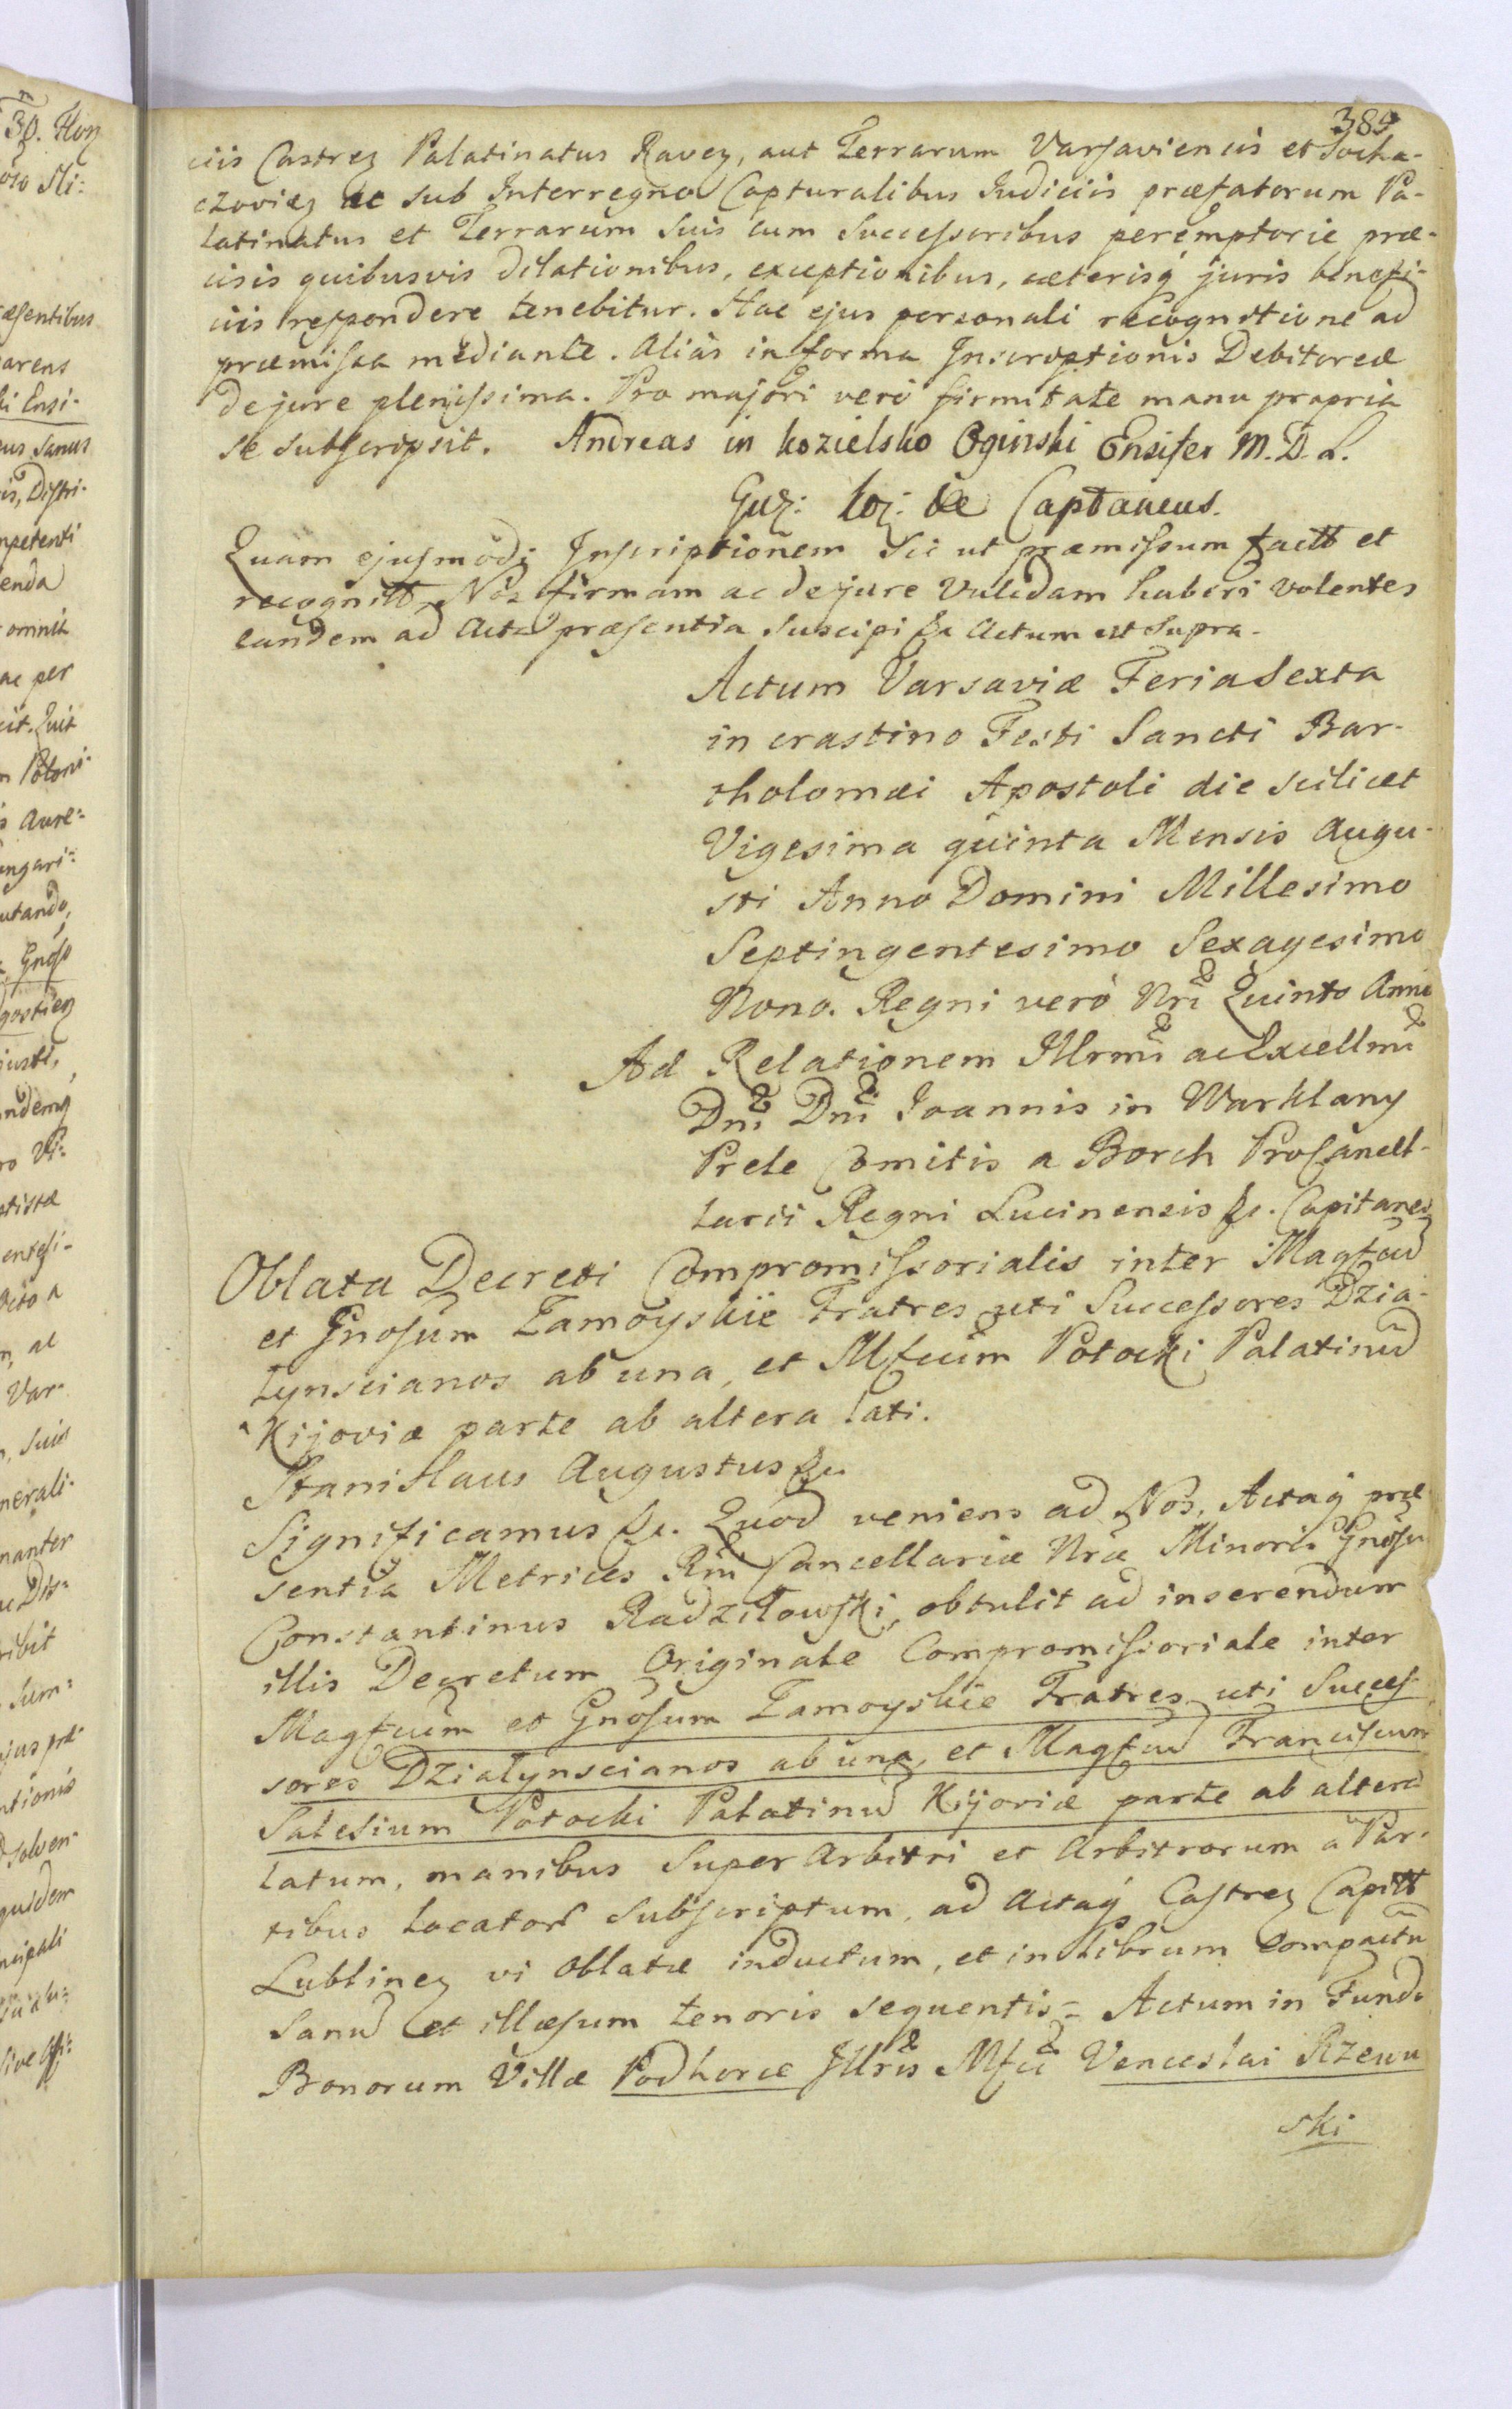 389
ciis Castreȝ Palatinatus Raveȝ, aut Terrarum Varsaviensis et Socha-
czovieȝ ac sub Interregno Capturalibus Judiciis præfatorum Pa-
latinatus et Terrarum suis cum Successoribus peremptorie præ-
cisis quibusvis dilationibus, exceptionibus, cæterisq́ juris benefi-
ciis respondere tenebitur. Hac ejus personali recognitione ad
præmissa mediante. Aliàs in forma Inscriptionis Debitoreæ
de jure plenissima. Pro majori verò firmitate manu propria
se subscripsit. Andreas in Kozielsko Oginski Ensifer M.D.L.
Guȝ: Loȝ: &c Captaneus.
Quam ejusmodi Inscriptionem Sic ut præmissum factt et
recognitt Nos firmam ac de jure Validam haberi volentes
eandem ad Acta præsentia suscipi &c Actum est supra.
Actum Varsaviæ Feria Sexta
in crastino Festi Sancti Bar-
tholomæi Apostoli die scilicet
Vigesima quinta Mensis Augu-
sti Anno Domini Millesimo
Septingentesimo Sexagesimo
Nono. Regni verò Nri Quinto Anno
Ad Relationem Illrmi ac Excellmi
Dni Dni Joannis in Warklany
Prele Comitis a Borch ProCancel-
larii Regni Lucinensis &c. Capitanei
Oblata Decreti Compromissorialis inter Magfcū
et Gnosum Zamoyskie Fratres uti Successores Dzia-
łynscianos ab una, et Mfcum Potocki Palatinū
Kijoviæ parte ab altera lati.
Stanislaus Augustus &c
Significamus &c. Quod veniens ad Nos, Actaq́ præ-
sentia Metrices Rni Cancellariæ Nræ Minoris Gnosus
Constantinus Radziłowski, obtulit ad inserendum
illis Decretum Originale Compromissoriale inter
Magfcum et Gnosum Zamoyskie Fratres uti Succes-
sores Działynscianos ab una, et Magfcū Franciscum
Salesium Potocki Palatinū Kijoviæ parte ab altera
latum, manibus Super Arbitri et Arbitrorum a Par-
tibus Locator subscriptum, ad Actaq́ Castreȝ Capitt
Lublineȝ vi Oblatæ inductum, et in Librum Compactū
sanū et illæsum tenoris sequentis = Actum in Fundo
Bonorum Villæ Podhorce Illris Mfci Venceslai Rzewu
ski